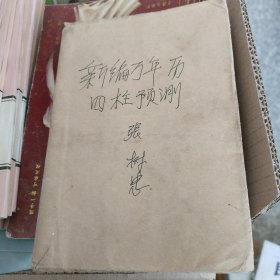 新编万年历
四柱预测
張
树
忠